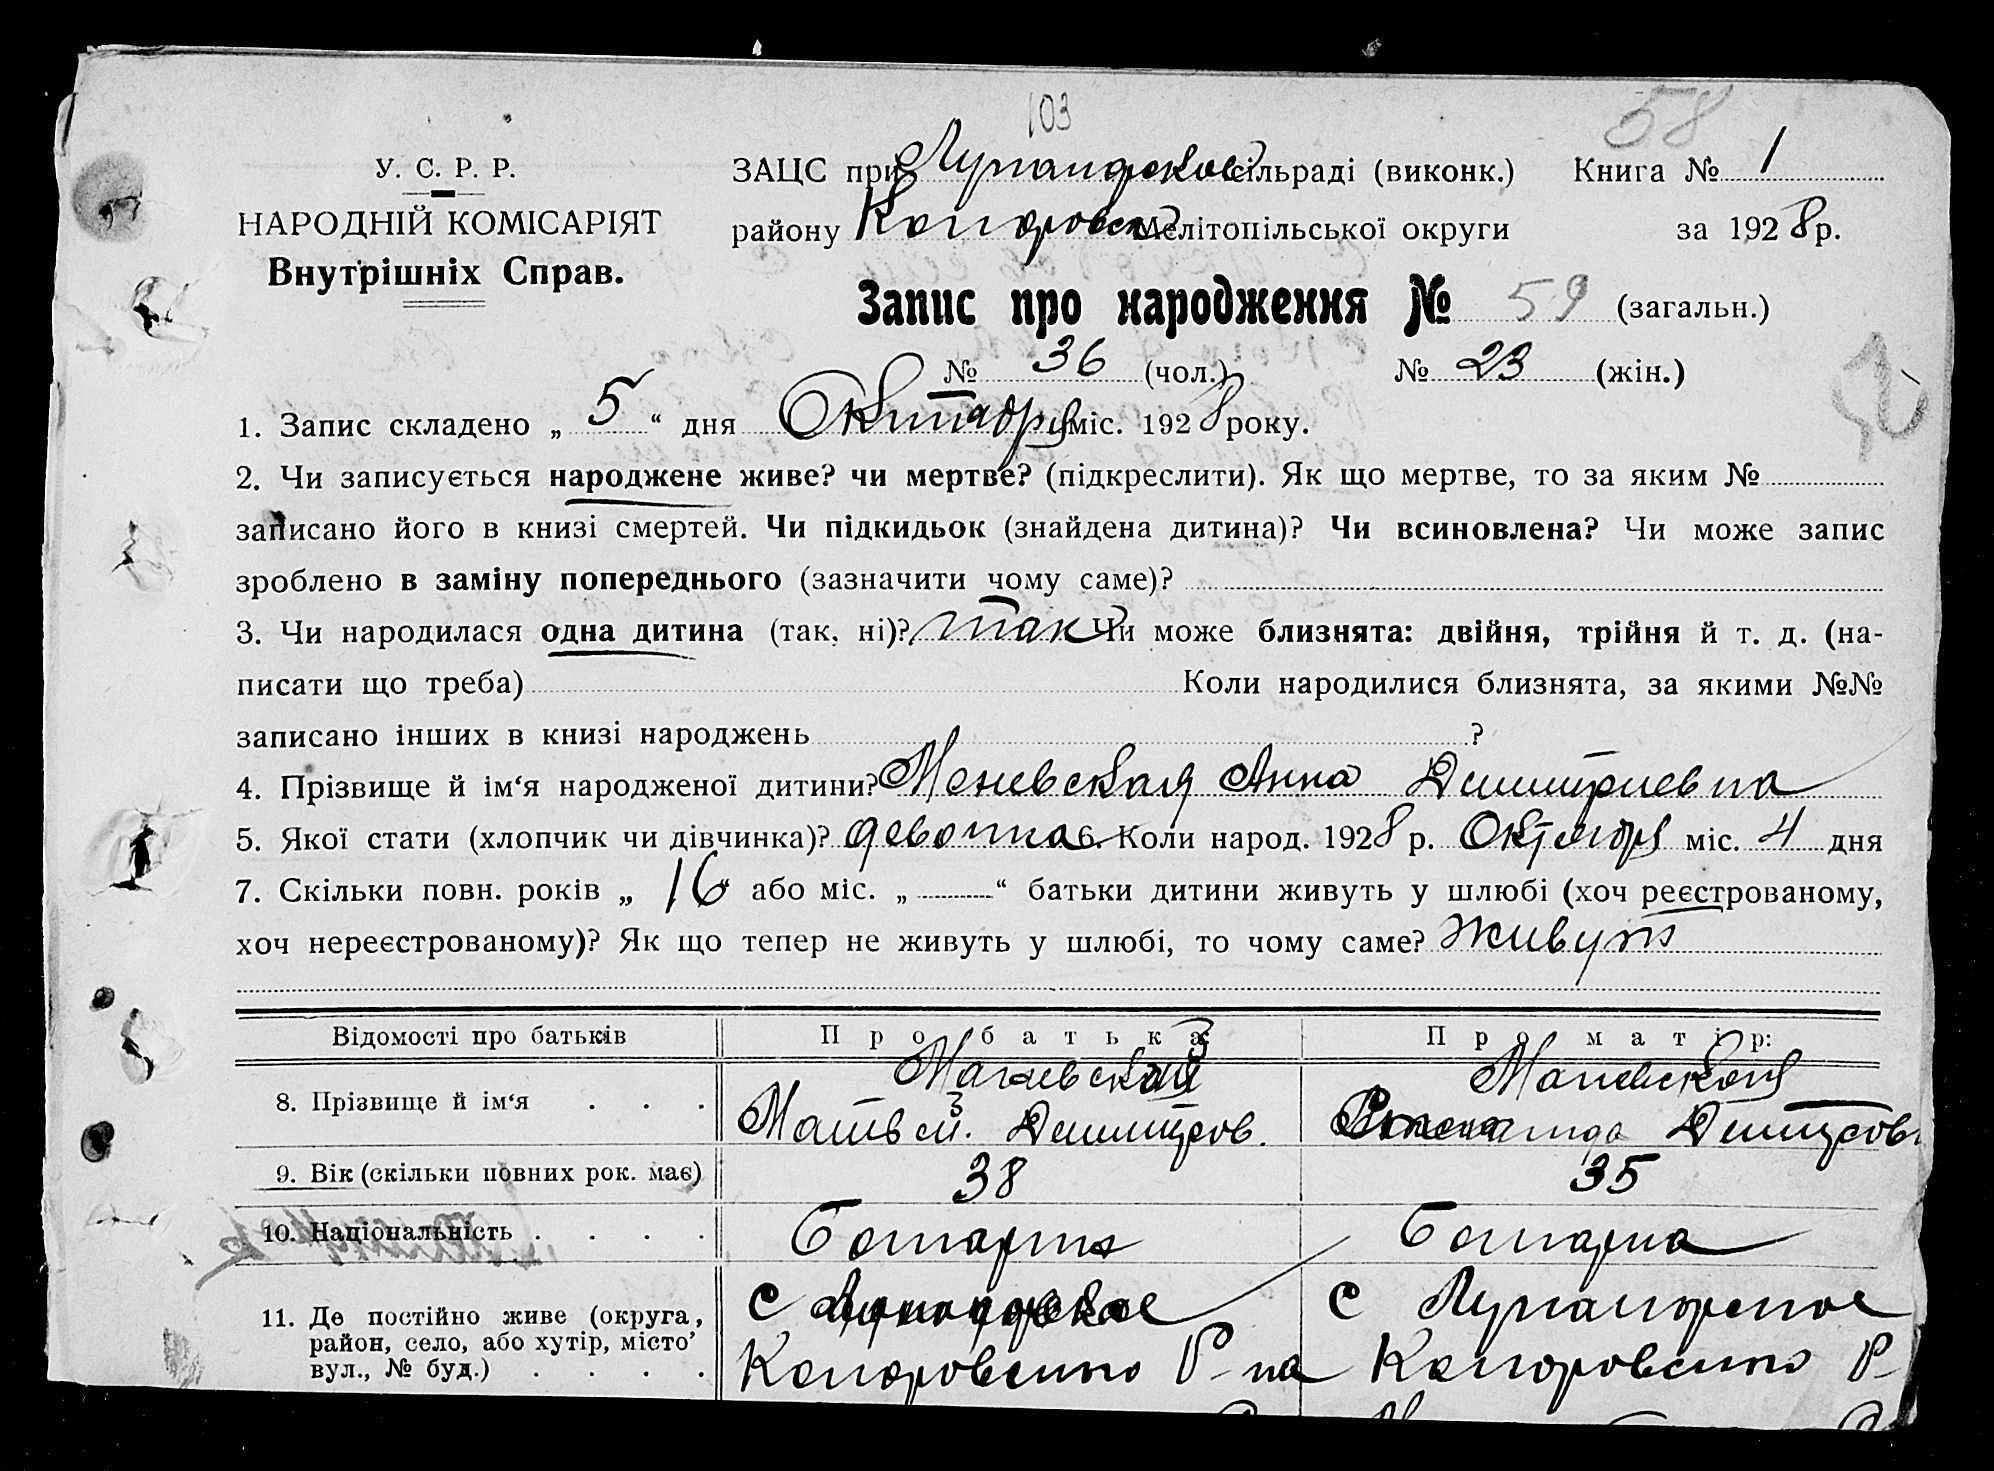 103
58
У. С. Р. Р.
НАРОДНІЙ КОМІСАРІЯТ
Внутрішніх Справ.
ЗАЦС при сільраді (виконк.) Книга № 1
району Мелітопільської округи за 1928 р.
Запис про народження № 59 (загальн.)
№ 36 (чол.) № 23 (жін.)
1. Запис складено „ 5 “ дня Октября міс. 1928 року.
2. Чи записується народжене живе? чи мертве? (підкреслити). Як що мертве, то за яким №
записано його в книзі смертей. Чи підкидьок (знайдена дитина)? Чи всиновлена? Чи може запис
зроблено в заміну попереднього (зазначити чому саме)?
3. Чи народилася одна дитина (так, ні)? так Чи може близнята: двійня, трійня й т. д. (на-
писати що треба) Коли народилися близнята, за якими №№
записано інших в книзі народжень ?
4. Прізвище й ім‘я народженої дитини? Анна Димитриевна
5. Якої стати (хлопчик чи дівчинка)? девочка 6. Коли народ. 1928 р. Октября міс. 4 дня
7. Скільки повн. років „ 16 “ або міс. „ “ батьки дитини живуть у шлюбі (хоч реєстрованому,
хоч нереєстрованому)? Як що тепер не живуть у шлюбі, то чому саме? живут
Відомості про батьків Про батька: Про матір:
8. Прізвище й ім‘я . . .
Димитров.
9. Вік (скільки повних рок. має) 38 35
10. Національність . . . . Болгарин Болгарка
11. Де постійно живе (округа, с с
район, село, або хутір, місто’
вул., № буд.) . . . . Р-на Р-